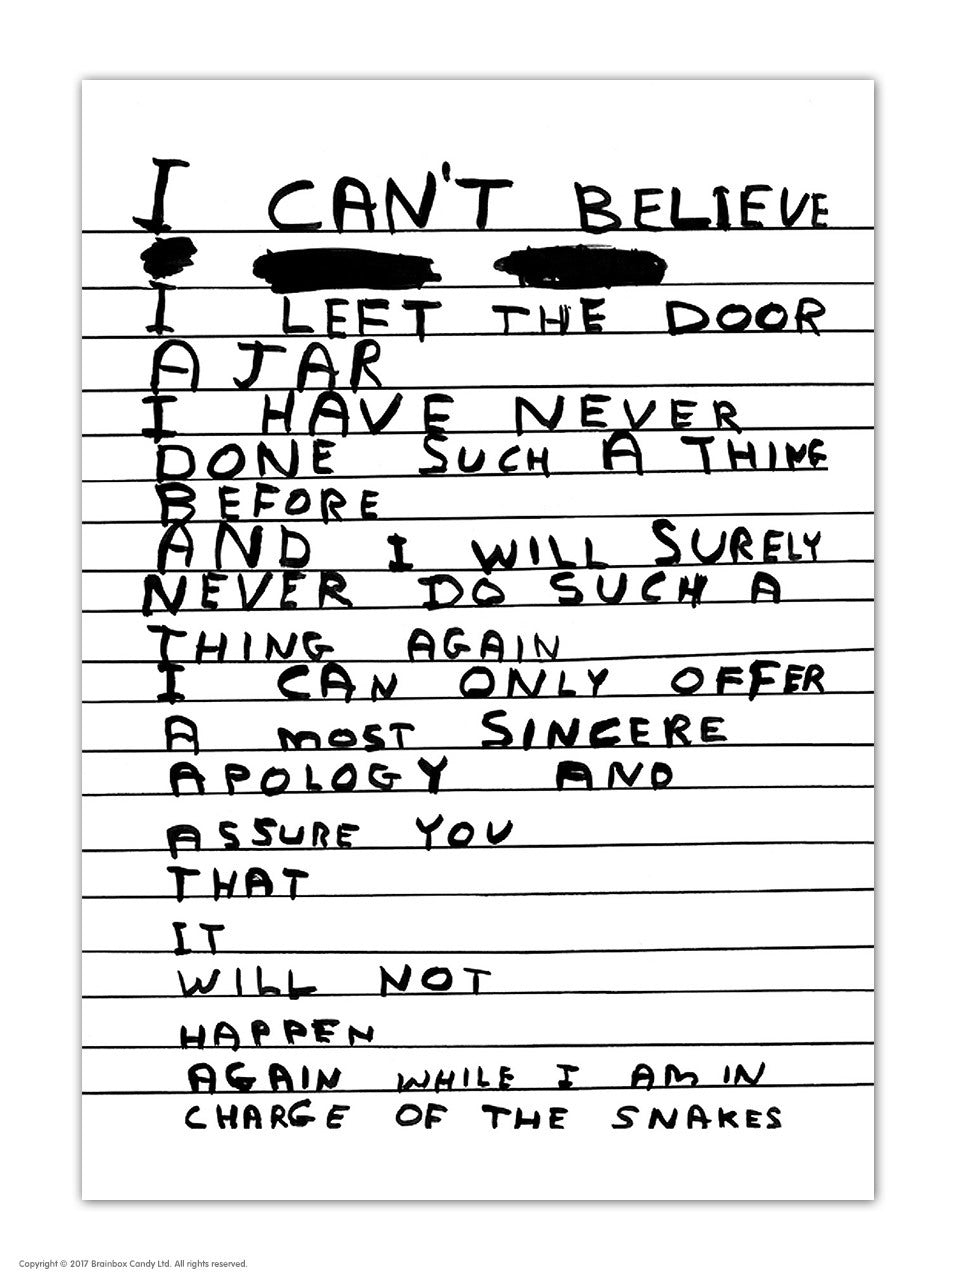 I CAN'T BELIEVE
I LEFT THE DOOR
AJAR
I HAVE NEVER
DONE SUCH A THING
BEFORE
AND I WILL SURELY
NEVER DO SUCH A
THING AGAIN
I CAN ONLY OFFER
A MOST SINCERE
APOLOGY AND
ASSURE YOU
THAT
IT
WILL NOT
HAPPEN
AGAIN WHILE I AM IN
CHARGE OF THE SNAKES
Copyright © 2017 Brainbox Candy Ltd. All rights reserved.